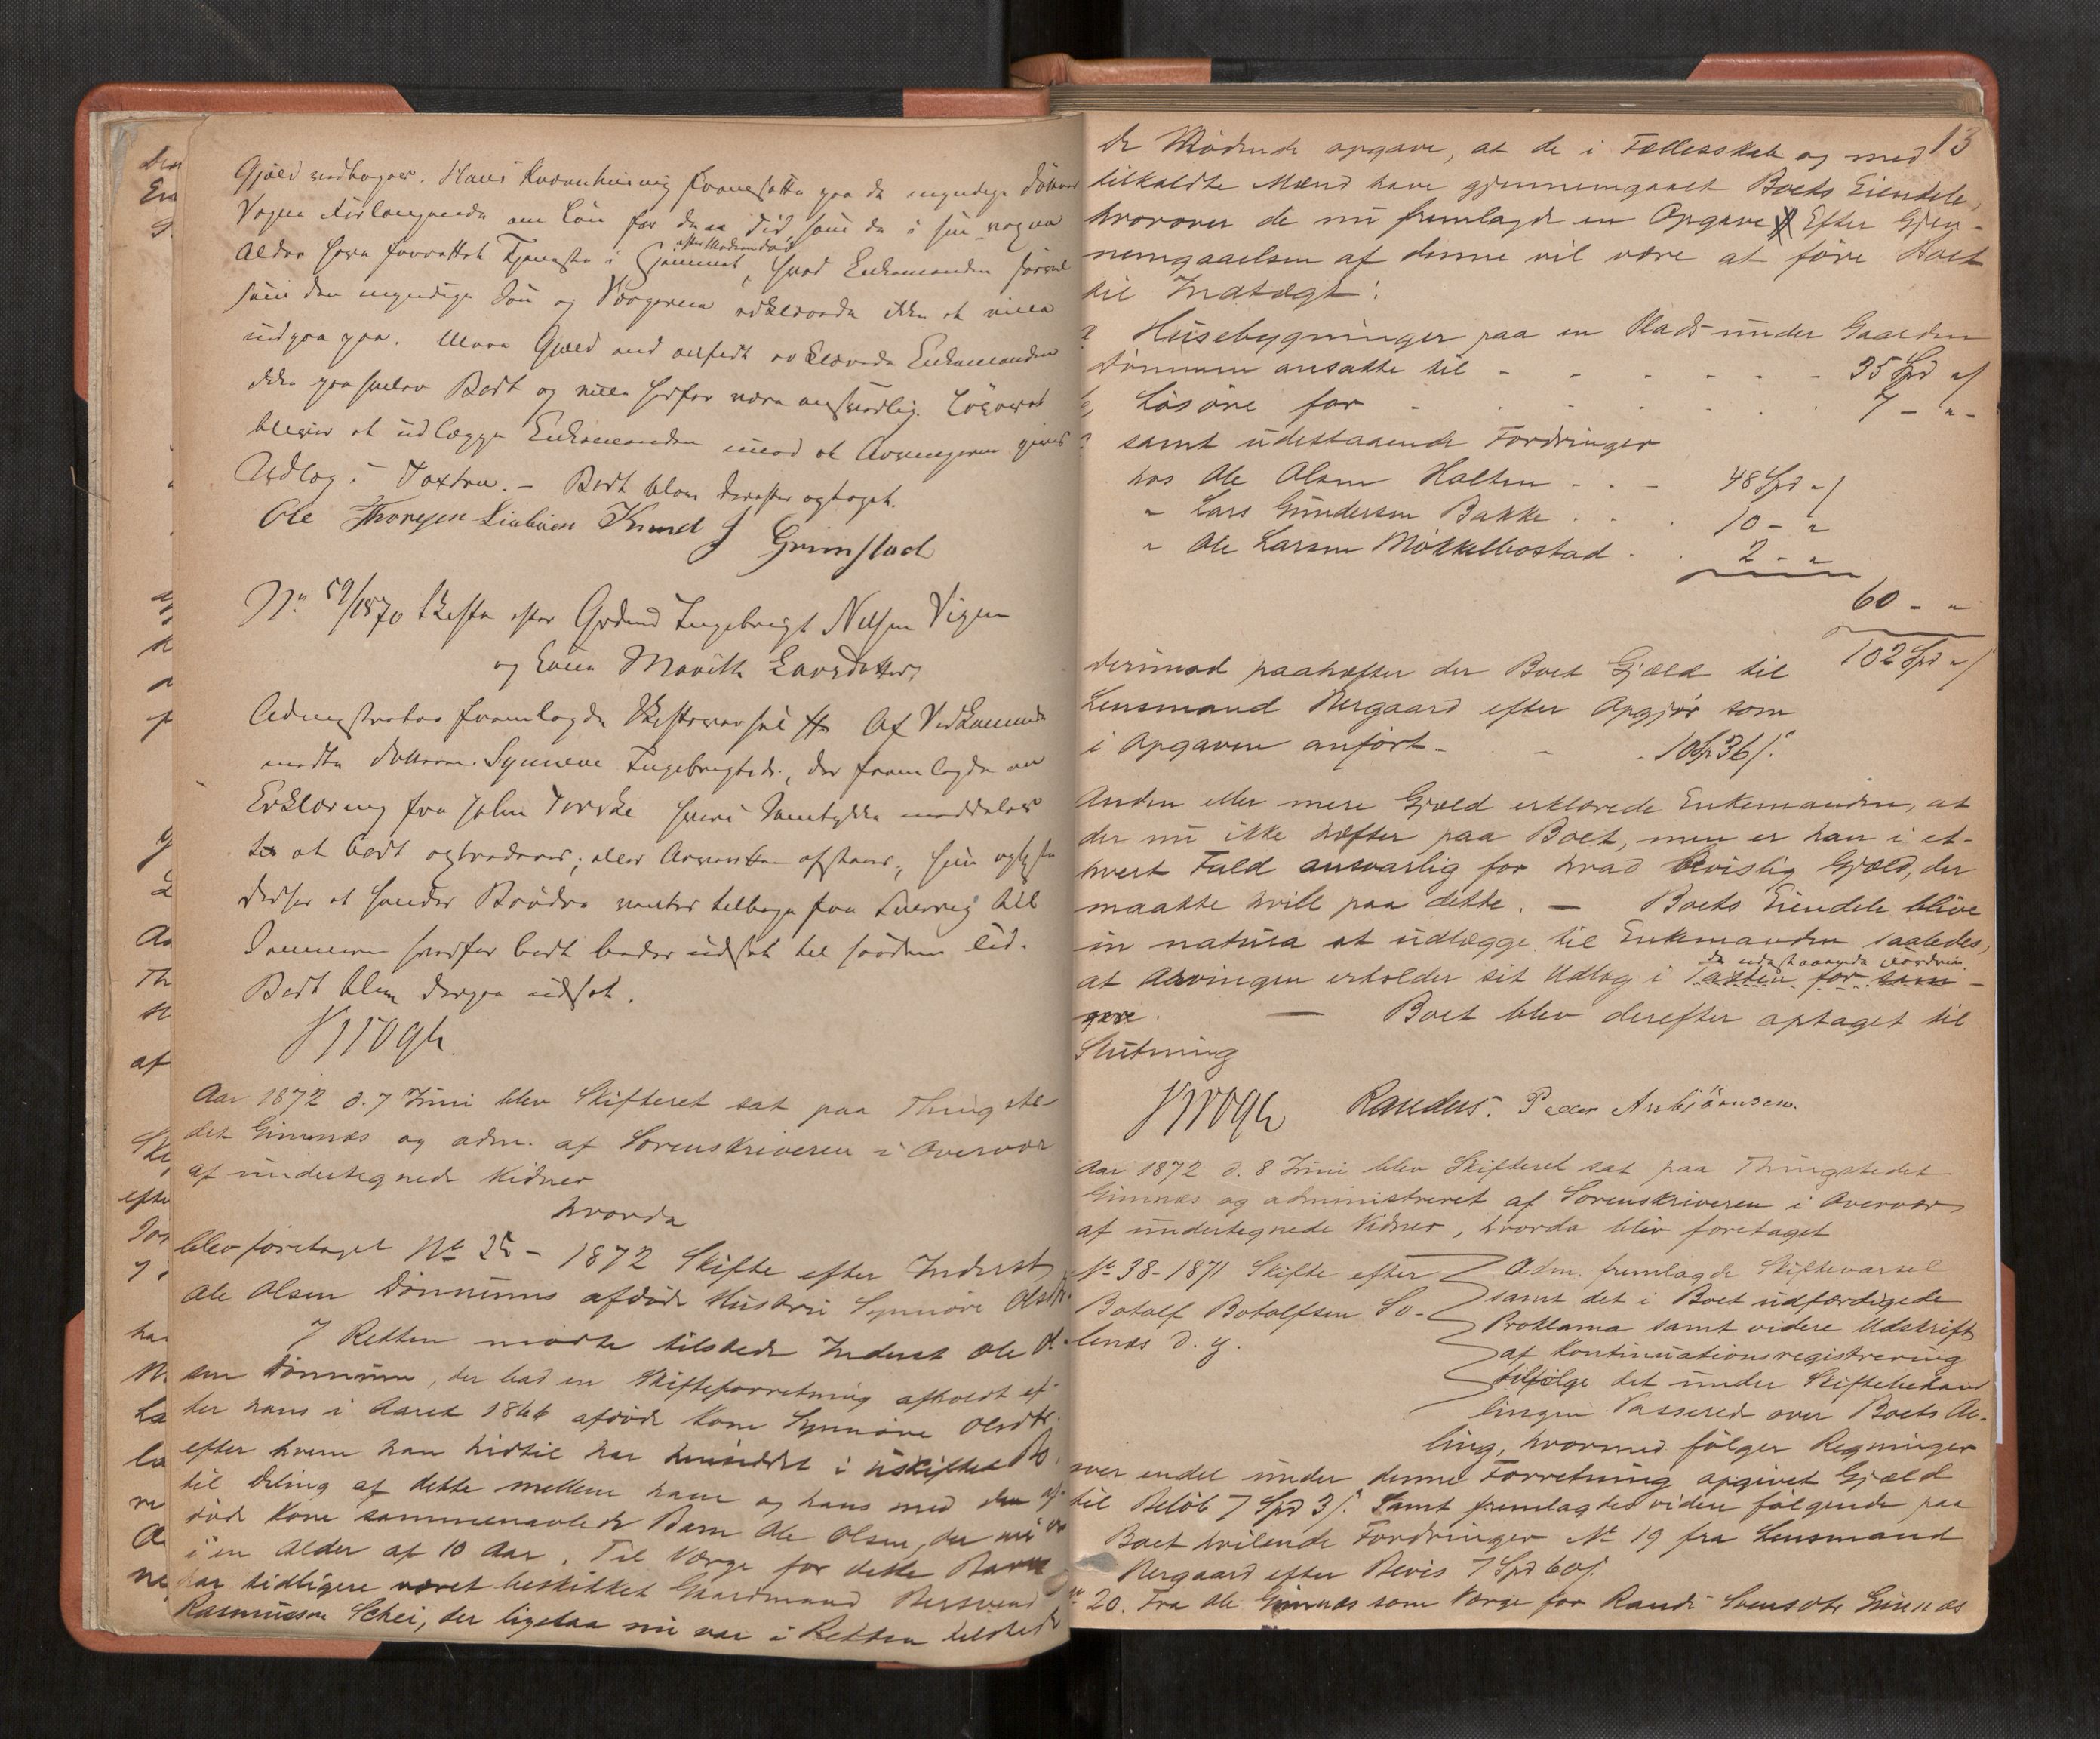 Gjæld vedtoges. Hans fremsatte paa de myndige Døttres
Vegne Forlangende om Løn for den Tid, som de i sin voxne
Alder have forrettet Tjeneste i Hjemmet, hvad Enkemanden
efter Moderens død
som den myndige Søn og Værgerne erklærede ikke at ville
indgaa paa. Mere Gjæld end anført erklærede Enkemanden
ikke paahviler Boet og ville herfor være ansvarlig. Løsøret
bliver at udlægge Enkemanden imod at Arvingerne gives
Udlæg i Taxten. – Boet blev derefter optaget.
Ole Knud J Grimstad
No 59/1870 Skifte efter Grdmd Ingebrigt Nilsen Vigen
og Kone Marith Larsdatter,
Administrator fremlagde Skiftevarsel Af Vedkommende
mødte Datteren Synneve Ingebrigtsdr., der fremlagde en
Erklæring fra John hvori Samtykke meddeles
til at Boet hun oplyste
derhos at hendes Brødre ventes tilbage fra Sverrig til
Sommeren hvorfor Boet beder udsat til saadan Tid.
Boet blev derpaa udsat.
Krogh.
Aar 1872 d. 7 Juni blev Skifteret sat paa Thingste-
det Gimnæs og adm. af Sorenskriveren i Overvær
af undertegnede Vidner
hvorda
blev foretaget No 25 – 1872 Skifte efter Inderst
Ole Olsen Dönnums afdøde Hustru Synnøve Olsdtr.
I Retten mødte tilstede Inderst Ole Ol-
sen Dönnum, der bad en Skifteforretning afholdt ef-
ter hans i Aaret 1866 afdøde Kone Synnøve Olsdtr.
efter hvem han hidtil har hensiddet i uskiftet Bo.
til Deling af dette mellem ham og hans med den af-
døde Kone sammenavlede Barn Ole Olsen, der nu er
i en Alder af 10 Aar. Til Værge for dette Barn
har tidligere været beskikket Gaardmand Bersvend
Rasmussen Schei, der ligesaa nu var i Retten tilstede
13
De Mødende opgave, at de i Fællesskab og med
tilkaldte Mænd have gjennemgaaet Boets Eiendele,
hvorover de nu fremlagde en Opgave Efter Gjen-
nemgaaelsen af denne vil være at føre Boet
til Indtægt:
Husebygninger paa en Plads under Gaarden
Dönnum ansatte til - - - - - - 35 Spd "
Løsøre for - . . . . . . 7 – " -
samt udestaaende Fordringer
hos Ole Olsen Holten - . - 48 Spd "
" Lars Gundersen Bakke . . . 10 – "
" Ole Larsen Mökkelbostad . . 2 - "
60 - "
102 Spd "
derimod paahæfter der Boet Gjæld til
Lensmand Bergaard efter Opgjør som
i Opgaven anført - - - 10 Sp 36 s.
Anden eller mere Gjæld erklærede Enkemanden, at
der nu ikke hæfter paa Boet, men er han i et-
hvert Fald ansvarlig for hvad bevislig Gjæld, der
maatte hvile paa dette. — Boets Eiendele blive
in natura at udlægge til Enkemanden saaledes,
de udestaaende Fordrin-
at Arvingen erholder sit Udlæg i Taxten for sam-
gere. — Boet blev derefter optaget til
Slutning
Krogh Randus. Peder Arnbjörnsen.
Aar 1872 d. 8 Juni blev Skifteret sat paa Thingstedet
Gimnæs og administreret af Sorenskriveren i Overvær
af undertegnede Vidner, hvorda blev foretaget
No 38-1871 Skifte efter
Botolf Botolfsen So-
lenæs d. y.
Adm. fremlagde Skiftevarsel
samt det i Boet udfærdigede
Proklama samt videre Udskrift
af Kontinuationsregistrering
tilfølge det under Skiftebehand
lingen Passerede over Boets Au-
ling, hvormed følger Regninger
over endel under denne Forretning opgivet Gjæld
til Beløb 7 Spd 3 s. Samt fremlagdes videre følgende paa
Boet hvilende Fordringer No 19 fra Lensmand
Bergaard efter Bevis 7 Spd 60 s.
" 20. Fra Ole Gimnæs som Værge for Randi Svensdtr Gimnæs